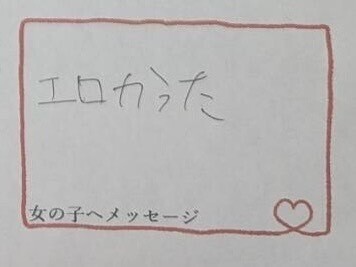 エロかった
女の子へメッセージ